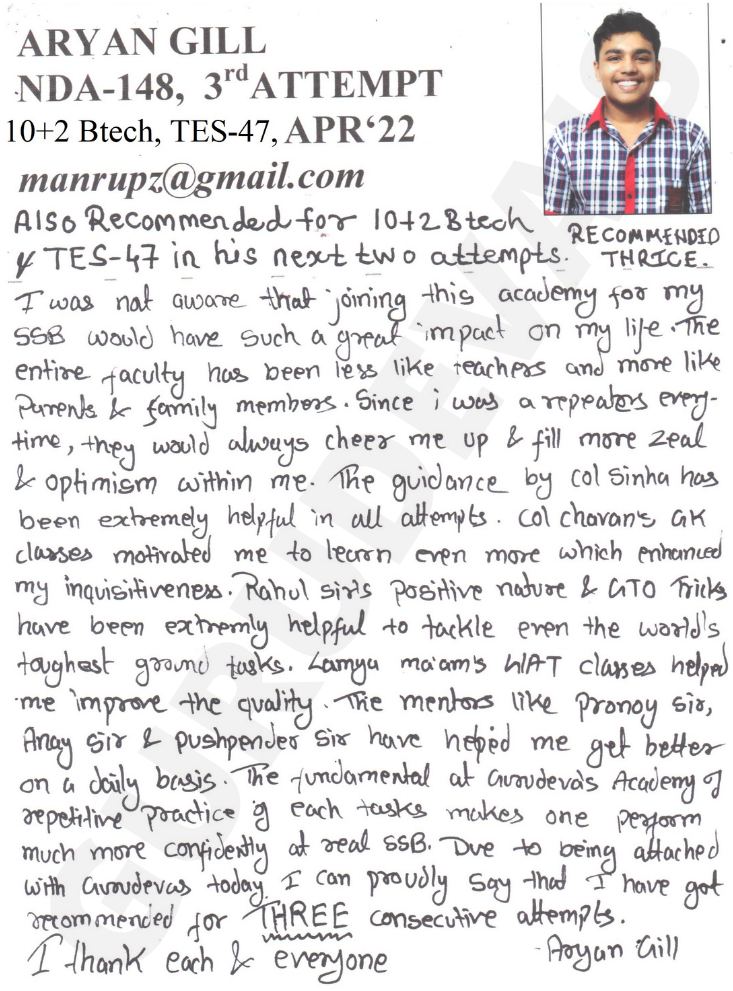 ARYAN GILL
NDA-148, 3rd ATTEMPT
10+2 Btech, TES-47, APR‘22
manrupz@gmail.com
Also Recommended for 10+2 Btech
& TES-47 in his next two attempts.
RECOMMENDED
THRICE.
I was not aware that joining this academy for my
SSB would have such a great impact on my life. The
entire faculty has been less like teachers and more like
Parents & family members. Since i was a repeaters every-
time, they would always cheer me up & fill more zeal
& optimism within me. The guidance by col Sinha has
been extremely helpful in all attempts. Col chavan's GK
classes motivated me to learn even more which enhanced
my inquisitiveness. Rahul sir's positive nature & GTO Tricks
have been extremly helpful to tackle even the world's
toughest ground tasks. Lamya ma'am's WAT classes helped
me improve the quality. The mentors like Pronoy sir,
Anay sir & pushpender sir have helped me get better
on a daily basis. The fundamental at Gurudevas Academy of
repetitive practice of each tasks makes one perform
much more confidently at real SSB. Due to being attached
with Gurudevas today I can proudly say that I have got
recommended for THREE consecutive attempts.
I thank each & everyone
-Aryan Gill
GURUDEVAS